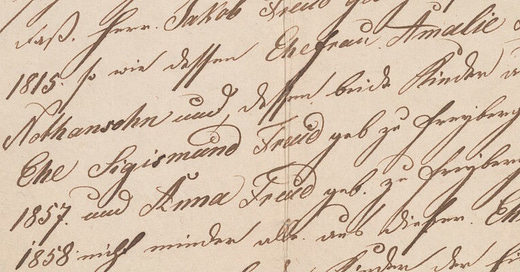 daß. Herr. Jakob Freud
1815. so wie dessen Ehefrau Amalie
Nathansohn und dessen beide Kinder
Ehe Sigismund Freud geb zu Freyberg
1857. und Anna Freud geb. zu Freyberg
1858. nicht minder als. aus dieser. Ehe
Kinder der